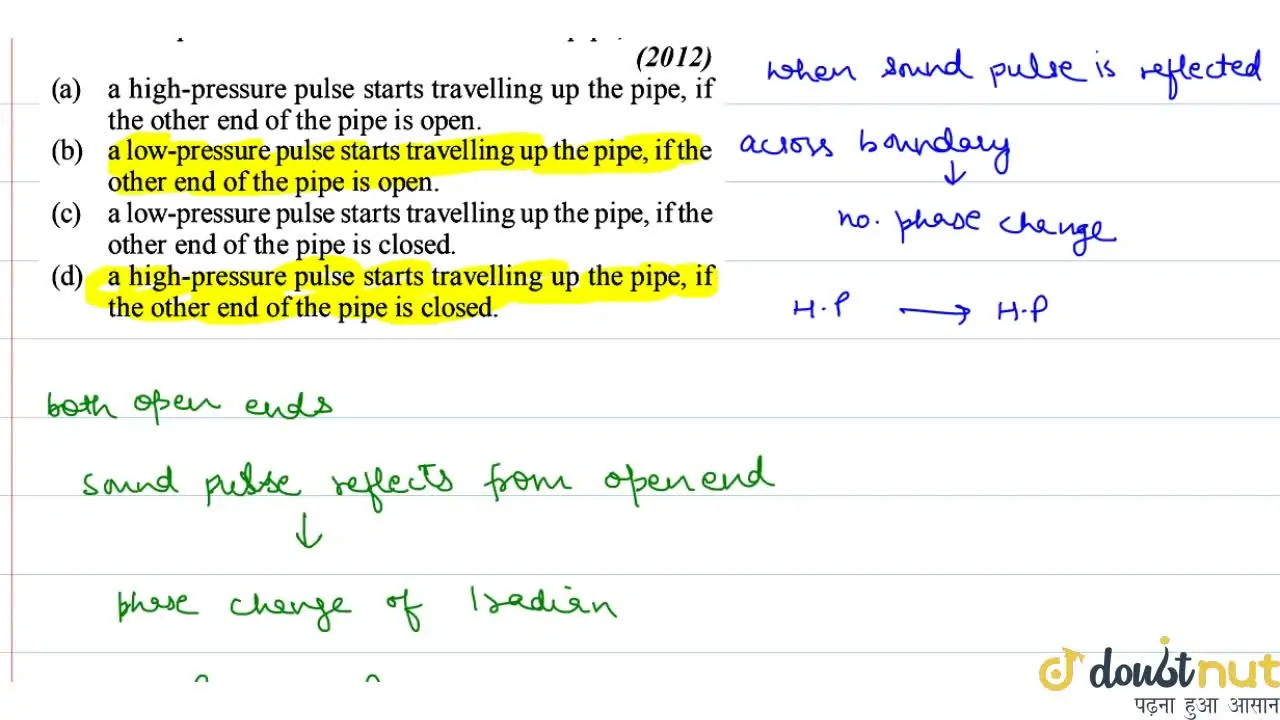 (2012)
(a) a high-pressure pulse starts travelling up the pipe, if
the other end of the pipe is open.
(b) a low-pressure pulse starts travelling up the pipe, if the
other end of the pipe is open.
(c) a low-pressure pulse starts travelling up the pipe, if the
other end of the pipe is closed.
(d) a high-pressure pulse starts travelling up the pipe, if
the other end of the pipe is closed.
when sound pulse is reflected
across boundary
↓
no. phase change
H.P → H.P
both open ends
sound pulse reflects from open end
↓
phase change of
doubtnut
पढ़ना हुआ आसान